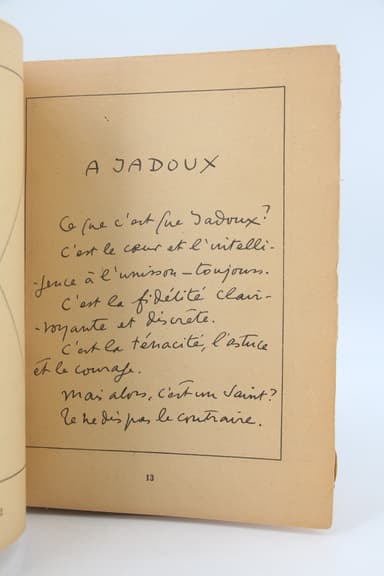 A JADOUX
Ce que c'est que Jadoux?
C'est le cœur et l'intelli-
-gence à l'unisson - toujours.
C'est la fidélité clair-
-voyante et discrète.
C'est la ténacité, l'astuce
et le courage.
Mais alors, c'est un Saint?
Je ne dis pas le contraire.
13
2